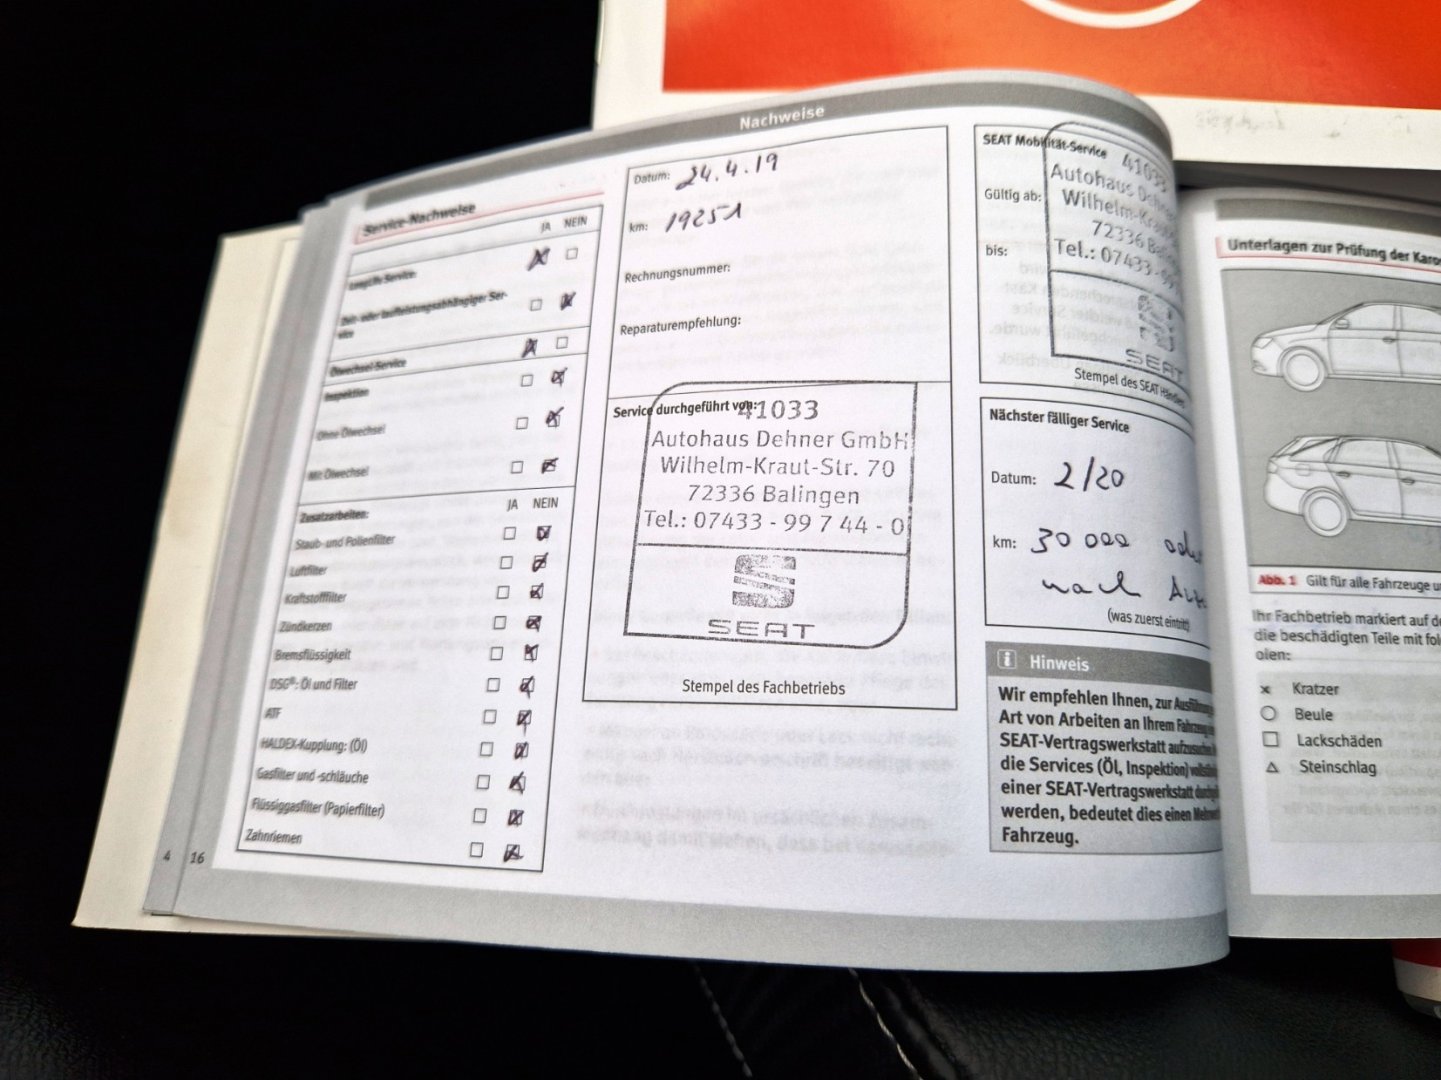 Nachweise
Service-Nachweise
JA NEIN
LongLife-Service
Zeit- oder laufleistungsabhängiger Ser-
vice
Ölwechsel-Service
Inspektion
Ohne Ölwechsel
Mit Ölwechsel
Zusatzarbeiten: JA NEIN
Staub- und Pollenfilter
Luftfilter
Kraftstofffilter
Zündkerzen
Bremsflüssigkeit
DSG®: Öl und Filter
ATF
HALDEX-Kupplung: (Öl)
Gasfilter und -schläuche
Flüssiggasfilter (Papierfilter)
Zahnriemen
4 16
Datum: 24.4.19
km: 19251
Rechnungsnummer:
Reparaturempfehlung:
Service durchgeführt von:
41033
Autohaus Dehner GmbH
Wilhelm-Kraut-Str. 70
72336 Balingen
Tel.: 07433 - 99 7 44 - 0
SEAT
Stempel des Fachbetriebs
SEAT Mobilität-Service
Gültig ab:
bis:
41033
Autohaus Dehner
Wilhelm-Kraut
72336 Balingen
Tel.: 07433 - 99
SEAT
Stempel des SEAT Händlers
Nächster fälliger Service
Datum: 2/20
km: 30 000 oder
nach
(was zuerst eintritt)
i Hinweis
Wir empfehlen Ihnen, zur Ausführung
Art von Arbeiten an Ihrem Fahrzeug
SEAT-Vertragswerkstatt aufzusuchen
die Services (Öl, Inspektion)
einer SEAT-Vertragswerkstatt
werden, bedeutet dies einen Mehrwert
Fahrzeug.
Unterlagen zur Prüfung der Karos
Abb. 1 Gilt für alle Fahrzeuge
Ihr Fachbetrieb markiert auf
die beschädigten Teile mit
olen:
Kratzer
Beule
Lackschäden
Steinschlag